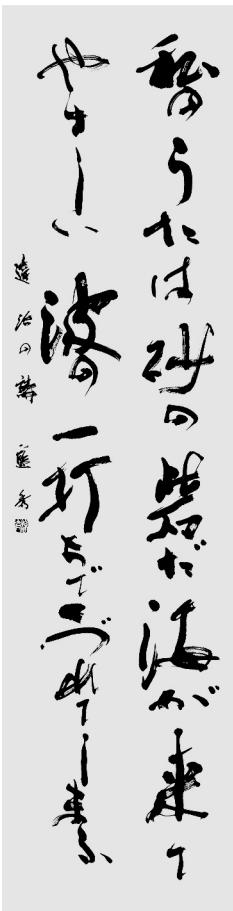 私のうたは砂の砦だ海が来て
やさしい波の一打ちでくづしてしまふ
道造の詩